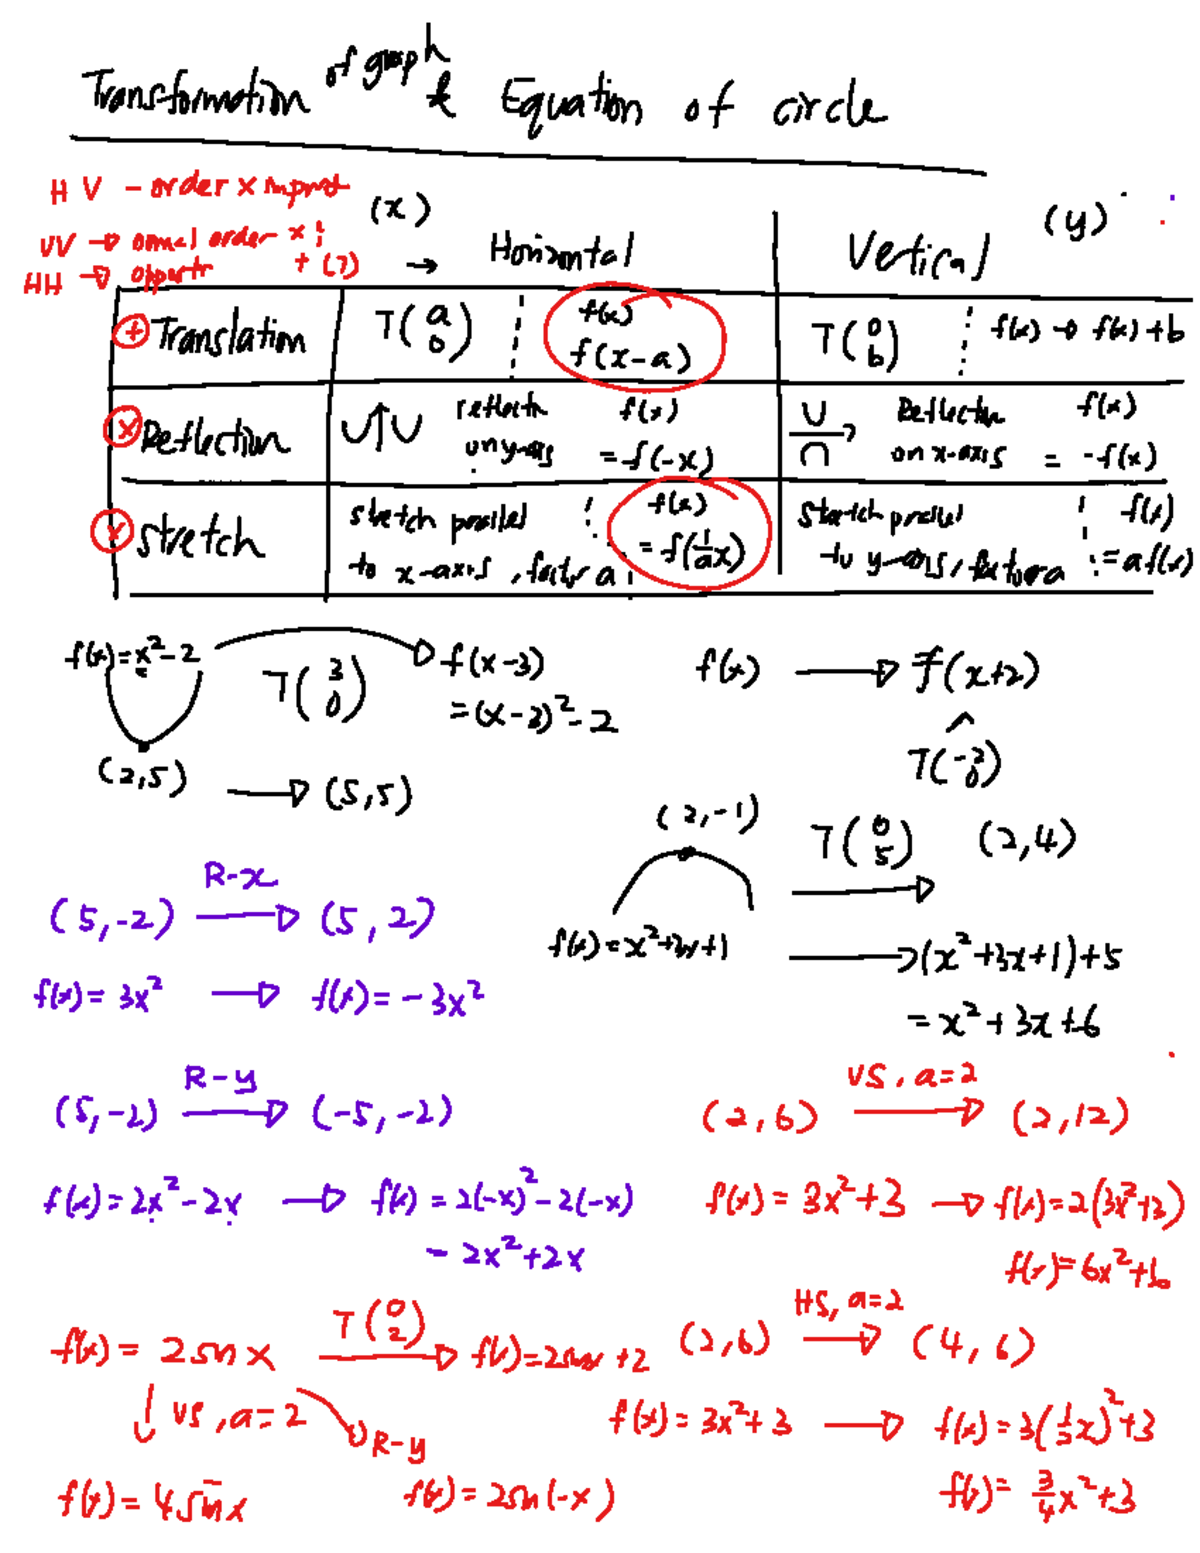 Transformation of graph & Equation of circle
H V - order x
(x)
(y)
VV → order x ;
HH → + (?)
→ Horizontal
Vertical
+ Translation T(a 0) f(x) f(x-a) T(0 b) f(x) → f(x)+b
x Reflection U↑U reflectn on y-axis f(x) = f(-x) Reflection on x-axis f(x) = -f(x)
x Stretch stretch parallel to x-axis, factor a f(x) = f(1/a x) Stretch parallel to y-axis, factor a f(x) = af(x)
f(x)=x²-2 T(3 0) → f(x-3)
=(x-3)²-2
(2,5) → (5,5)
f(x) → f(x+2)
T(-2 0)
(2,-1) T(0 5) (2,4)
f(x)=x²+3x+1 → (x²+3x+1)+5
= x²+3x+6
R-x
(5,-2) → (5,2)
f(x)=3x² → f(x)=-3x²
R-y
(5,-2) → (-5,-2)
f(x)=2x²-2x → f(x)=2(-x)²-2(-x)
- 2x²+2x
VS, a=2
(2,6) → (2,12)
f(x)=3x²+3 → f(x)=2(3x²+3)
f(x)=6x²+6
f(x)= 2sinx T(0 2) → f(x)=2sinx+2
VS, a=2
R-y
f(x)=4sinx
f(x)=2sin(-x)
HS, a=2
(2,6) → (4,6)
f(x)=3x²+3 → f(x)=3(1/2x)²+3
f(x)=3/4x²+3